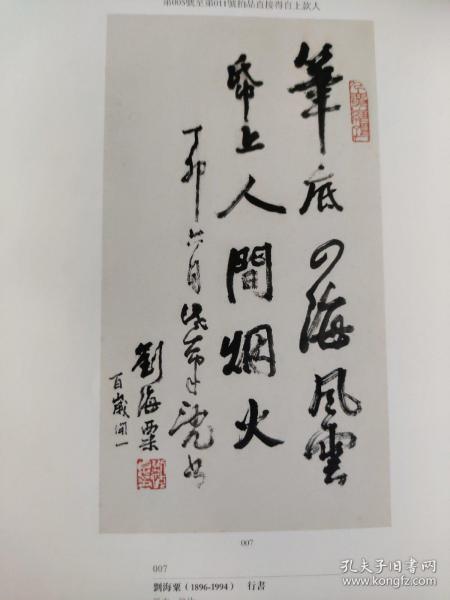 第005號至第011號拍品直接得自上款人
筆底四海風雲
帋上人間烟火
丁卯六月
劉海粟
百歲開一
007
007
劉海粟（1896-1994） 行書
孔夫子旧书网